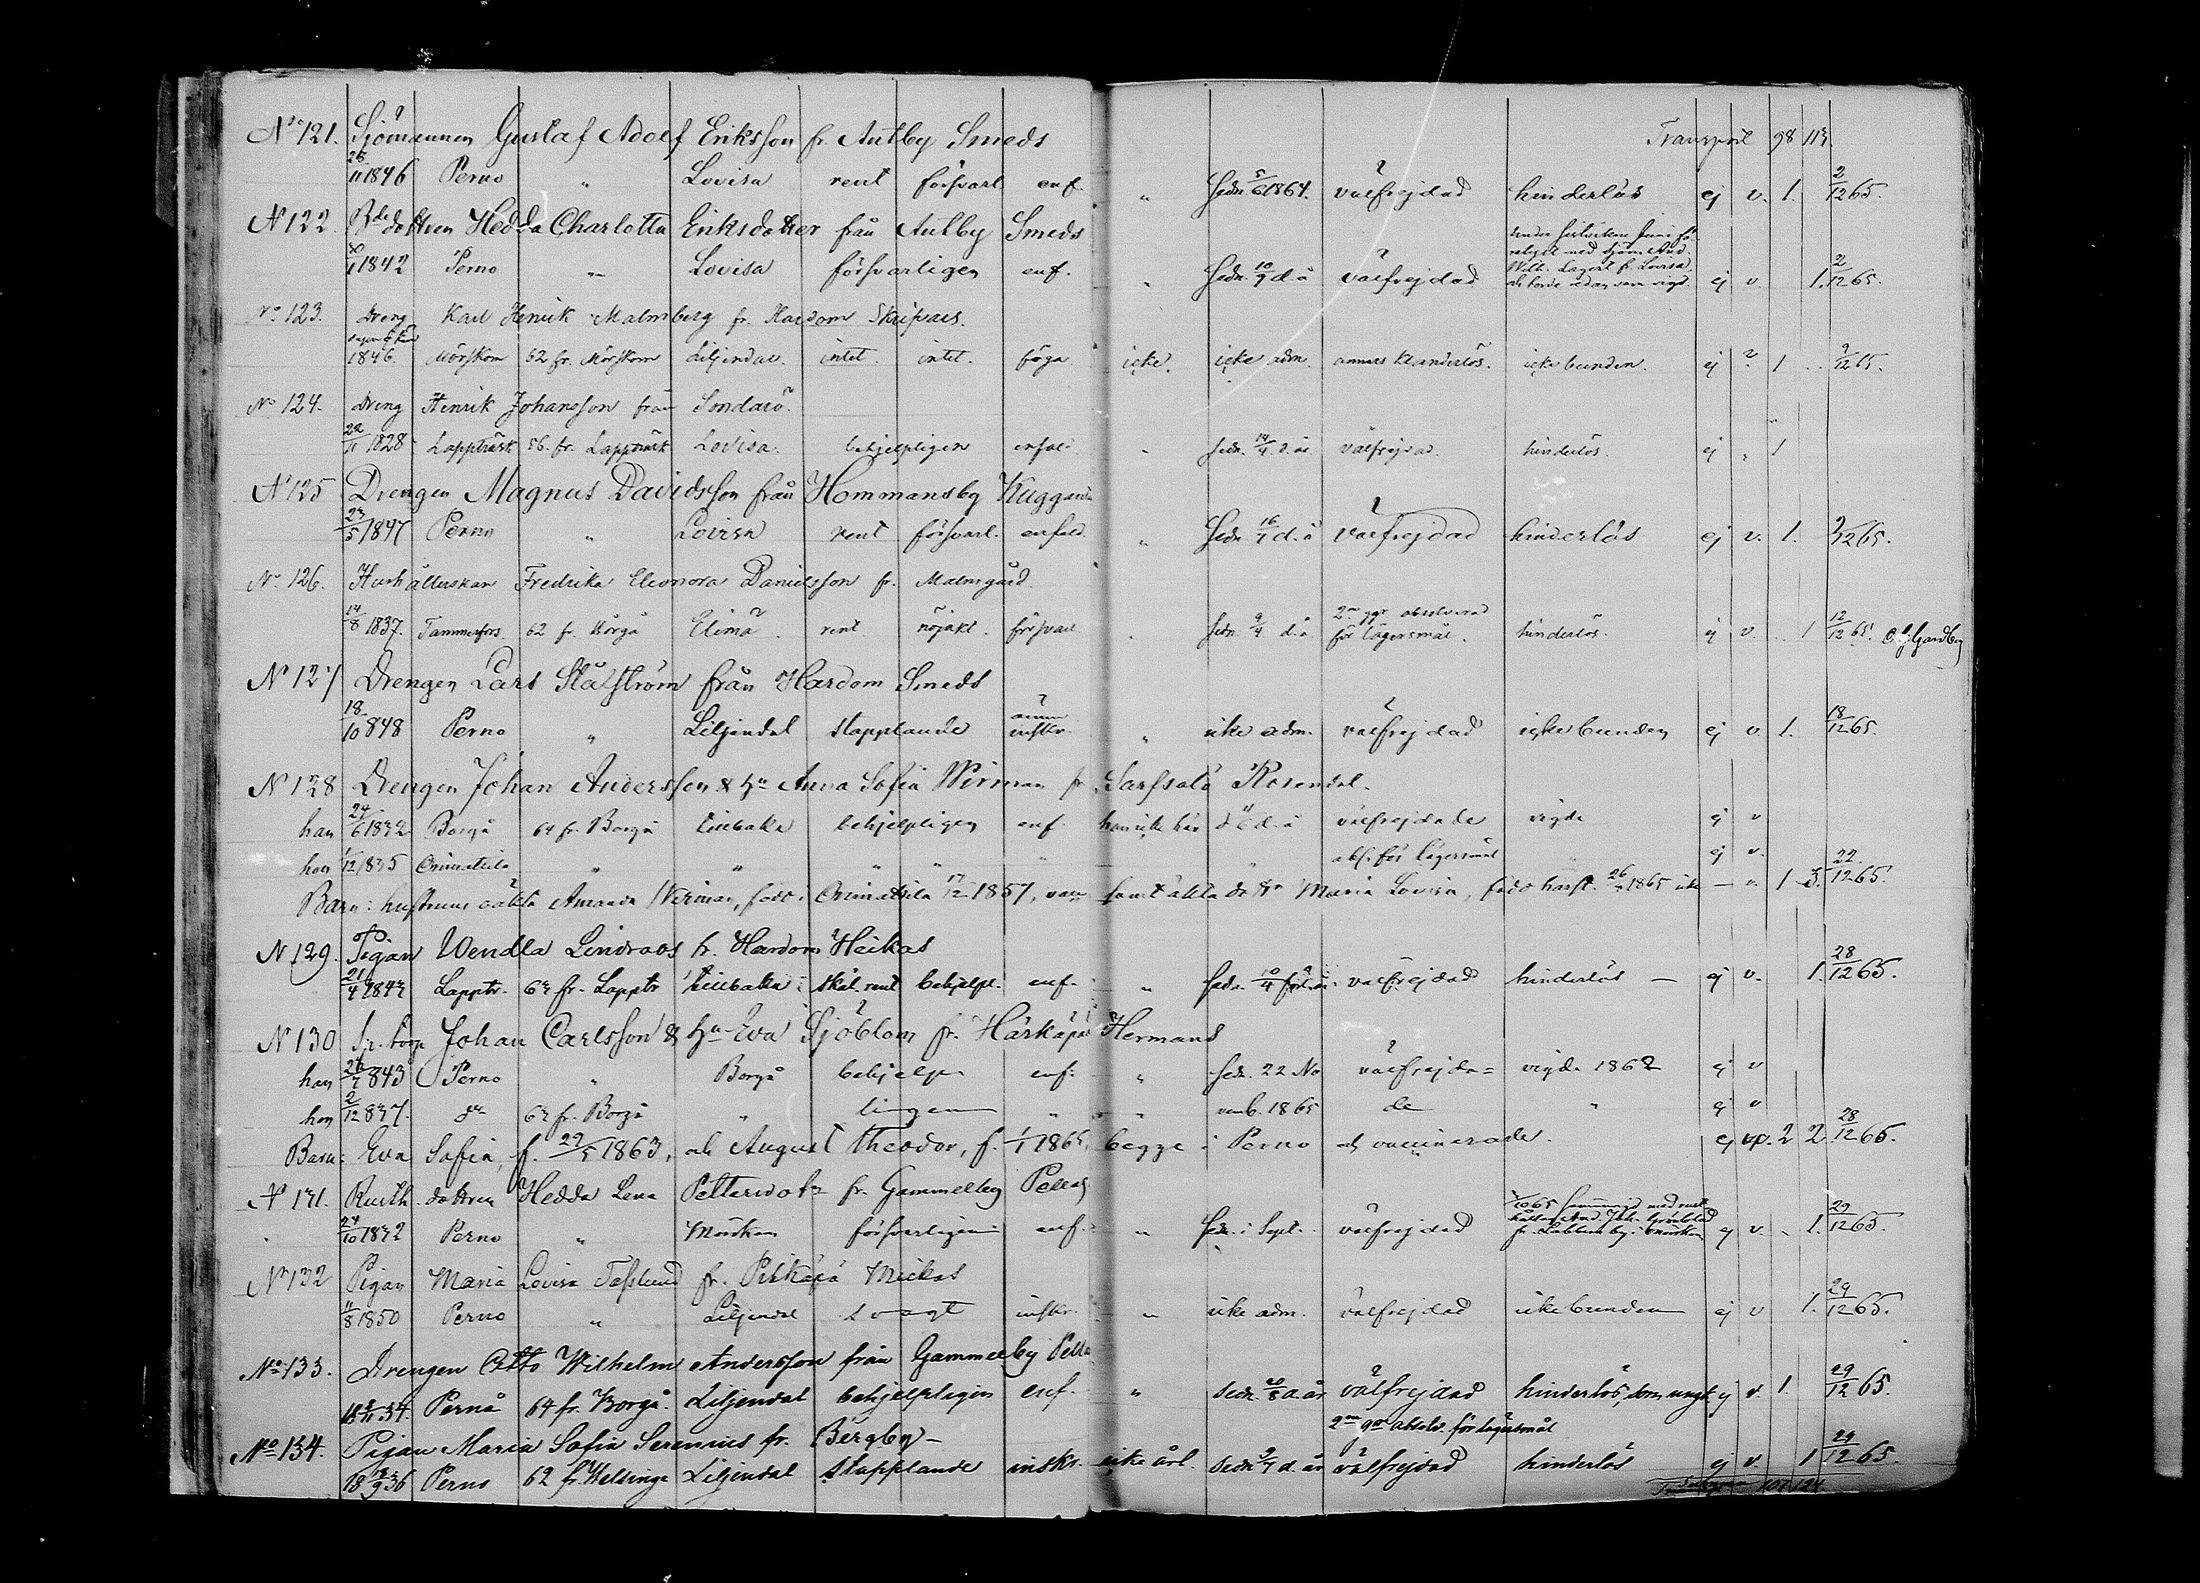 Transport 98 113.
No 121. Sjömannen Gustaf Adolf Eriksson fr. Antby Smeds
26/11 1846 Perno " Lovisa rent försvarl enf. " sedn 5/6 1864. välfrejdad hinderlös ej v. 1. 2/12 65.
N 122. Bdedottren Hedda Charlotta Eriksdotter från Antby Smeds
1842 Perno " Lovisa försvarligen enf. " sedn. 10/9 d. å välfrejdad ej v 1. 2/12 65.
No 123. Dreng Karl Henrik Malmberg fr. Hardom Skripars.
1846. Mörskom 62 fr. Mörskom Liljendal. intet. intet. föga icke. icke adm. annars klanderlös. icke bunden. ej ? 1 9/12 65.
No 124. Dreng Henrik Johansson från Sondarö.
22/11 1828 Lappträsk 56. fr. Lappträsk Lovisa. behjelpligen enfal " sedn. 14/4 d. år välfrejdad. hinderlös. ej " 1
N 125 Drengen Magnus Davidsson från Hommansby Kuggas
23/5 1847 Perno " Lovisa rent försvarl. enfald " sedn 16/7 d. å välfrejdad hinderlös ej v. 1. 9/12 65.
No. 126. Hushållerskan Fredrika Eleonora Danielsson fr. Malmgård
14/8 1837. Tammerfors 62 fr. Borgå Elimä. rent nöjakt. försvarl " sedn. 9/4 d. å 2ne ggr absolverad för lägersmål. hinderlös. ej v. 1 12/12 65.
N 127 Drengen Lars Ståhström från Hardom Smeds
18/10 848 Perno " Liljendal stapplande ännu inskr. " icke adm. välfrejdad icke bunden ej v 1. 18/12 65.
N 128 Drengen Johan Andersson & hu Anna Sofia Wirman fr. Sarfsalö Rosendal.
han 24/6 1832 Borgå 64 fr. Borgå innbaka behjelpligen enf han icke här d. å välfrejdade vigde ej v
hon 1/12 1835 Orimattila " " " " " " abs. för lägersmål " ej v.
Barn: hustruns oäkta Amanda Wirman, född i Orimattila 17/12 1857, vacc samt äkta dottr Maria Lovisa, född härst. 26/ 1865 icke — v. 1 3. 22/12 65.
N 129. Pigan Wendla Lindroos fr. Hardom Heikas
21/4 1843 Lapptr. 63 fr. Lapptr skäl. rent behjelpl. enf. " sedn. 10/4 välfrejdad hinderlös — ej v. 1. 28/12 65.
N 130 Johan Carlsson & hu Eva Sjöblom fr. Härkäpää Hermans
han 26/7 843 Perno " Borgå behjelp enf. " sedn. 22 No välfrejda= vigde 1862 ej v
hon 2/12 837. do 63 fr. Borgå " ligen " " vemb. 1865 de " ej v
Barn: Eva Sofia, f. 29/5 1863, och August Theodor, f. 1/1 1865, begge i Perno och vaccinerade. ej vp. 2 2 28/12 65.
N 131. Rusth. dottren Hedda Lena Pettersdotr fr. Gammelby Pellas
24/10 1832 Perno " Mörskom försvarligen enf. " sedn. i Sept. välfrejdad ej v. 1. 29/12 65.
No 132 Pigan Maria Lovisa Taslund fr. Pitkäpä Mickas
11/8 1850 Perno " Liljendal svagt inskr. " icke adm. välfrejdad icke bunden ej v 1. 29/12 65.
No 133. Drengen Otto Wilhelm Andersson från Gammelby Pella
18 2/11 34. Pernå 64 fr. Borgå. Liljendal behjelpligen enf. " sedn. 20/8 d. år välfrejdad hinderlös, som ungk. ej v. 1. 29/12 65.
No 134. Pigan Maria Sofia Serenius fr. Bergby— 2ne ggr absolv. för lägersmål
18 12/9 36 Perno 62 fr. Helsinge Liljendal stapplande inskr. icke årl. sedn 9/7 d. år välfrejdad hinderlös ej v. 1 29/12 65.